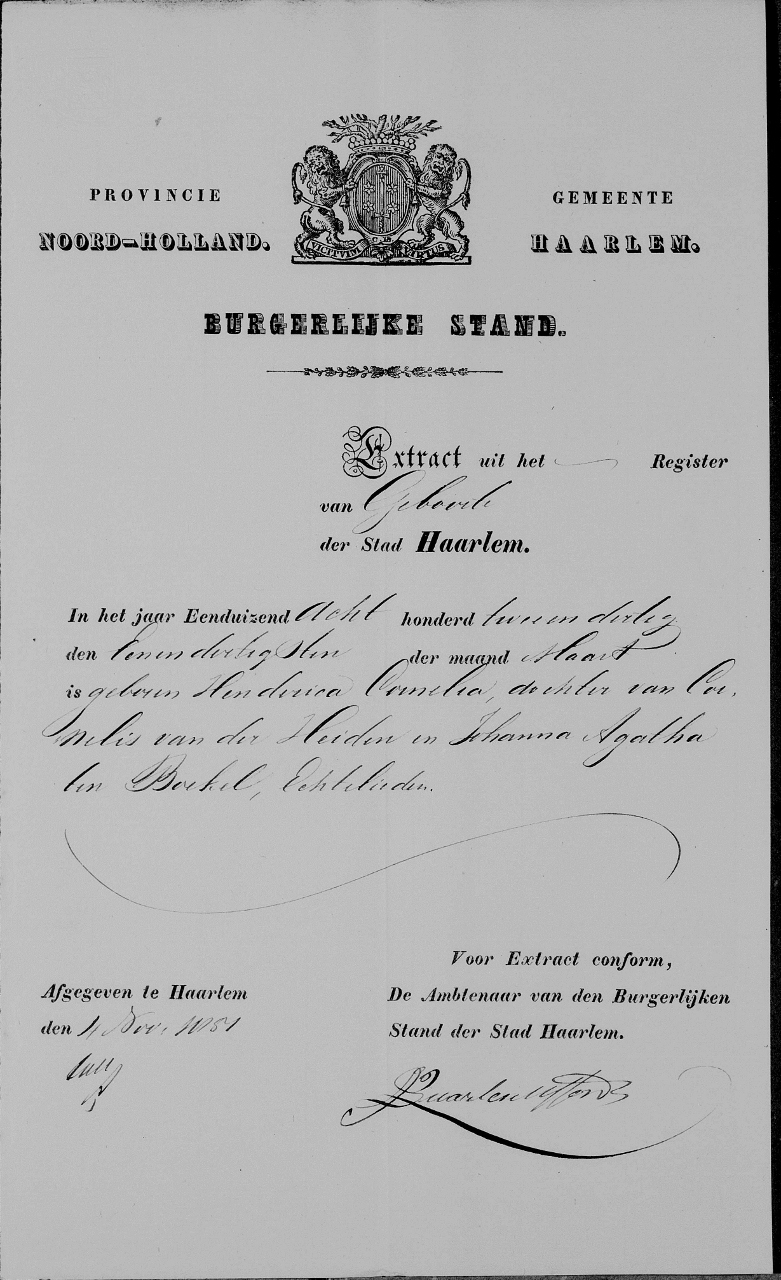 PROVINCIE
NOORD-HOLLAND.
GEMEENTE
HAARLEM.
VICIT VIM VIRTUS
BURGERLIJKE STAND.
Extract uit het — Register
van Geboorte
der Stad Haarlem.
In het jaar Eenduizend Acht honderd tweeendertig
den Eenendertigsten der maand Maart
is geboren Henderica Cornelia, dochter van Cor,
nelis van der Heiden en Johanna Agatha
ten Boekel, Echtelieden.
Voor Extract conform,
Afgegeven te Haarlem
De Ambtenaar van den Burgerlijken
den 4 Nov. 1851
Stand der Stad Haarlem.
Quarles v Ufford